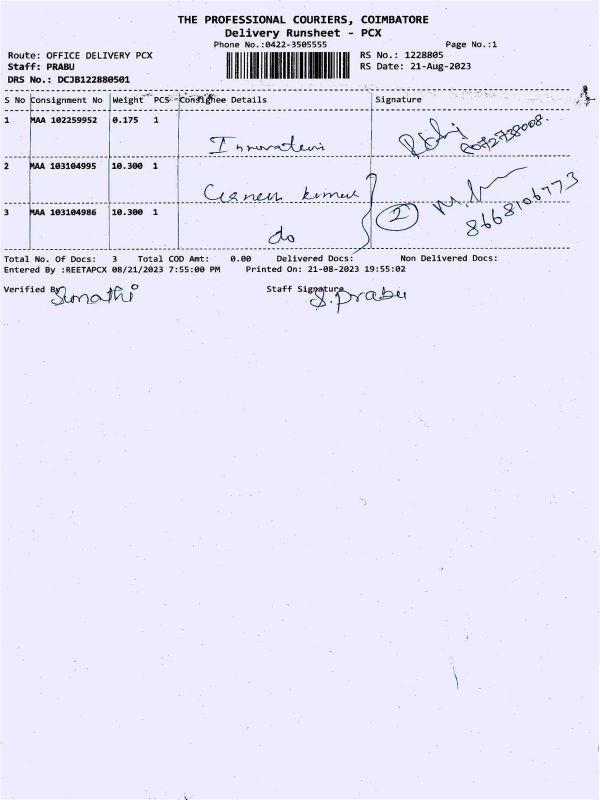 THE PROFESSIONAL COURIERS, COIMBATORE
Delivery Runsheet - PCX
Phone No.:0422-3505555 Page No.:1
Route: OFFICE DELIVERY PCX RS No.: 1228805
Staff: PRABU RS Date: 21-Aug-2023
DRS No.: DCJB122880501
S No Consignment No Weight PCS Consignee Details Signature
1 MAA 102259952 0.175 1
2 MAA 103104995 10.300 1
2 8668106773
3 MAA 103104986 10.300 1 do
Total No. Of Docs: 3 Total COD Amt: 0.00 Delivered Docs: Non Delivered Docs:
Entered By :REETAPCX 08/21/2023 7:55:00 PM Printed On: 21-08-2023 19:55:02
Verified By Sumathi Staff Signature S. Prabu